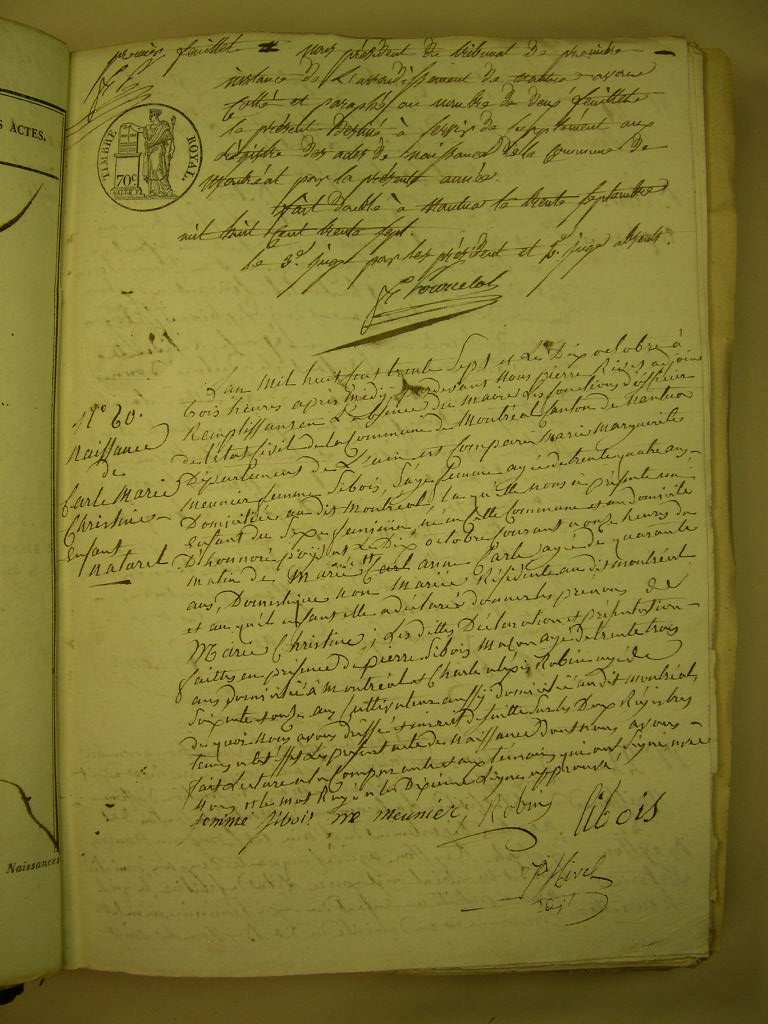 S ACTES.
premier feuillet Nous président du tribunal de première
instance de L'arrondissement de nantua avons
Cotté et paraphé au nombre de deux feuillets
le présent destiné à servir de supplément aux
registre des actes de naissance de la commune de
Montréal pour la présente année.
fait double à Nantua le trente septembre
mil huit cent trente sept.
le 3e. juge pour les président et 1er. juge absents.
TIMBRE ROYAL.
70c
N° 60.
Naissance
de
Carle Marie
Christine
enfant
naturel
L'an Mil huit Cent trente Sept et Le Dix octobre à
trois heures après Midy, pardevant Nous pierre Rivet adjoint
Remplissant en L'absence du Maire Les fonctions d'officier
de l'état Civil de la Commune de Montréal Canton de Nantua
Département de L'ain est Comparue Marie Marguerite
Meunier femme Sibois, Sage femme agée de trente quatre ans,
Domiciliée au dit Montréal, la qu'elle nous a présenté un
enfant du Sexe feminin, né en Cette Commune et au domicile
D'honnoré Le Dix octobre Courant a onze heures du
Matin de Marie anne Carle agée de quarante
ans, Domestique non Mariée Résidente au dit Montréal
et au qu'el enfant elle a déclaré donner les prenoms de
Marie Christine; Les dittes Déclaration et présentation
faittes en présence de pierre Sibois Maçon agé de trente trois
ans domicilié à Montréal et Charle alexis Robin agé de
Soixante et onze ans Cultivateur aussi domicilié au dit Montréal
de quoi Nous avons dressé et inscrit de suitte sur les Deux Régistres
tenus a Cet effet Le présent acte de Naissance dont nous avons
fait Lecture a la Comparante et aux témoins qui ont Signé avec
Nous et le mot Rayé a la Dixieme Ligne approuvé
femme Sibois née meunier, Robin Sibois
Rivet
adjt
Naissances